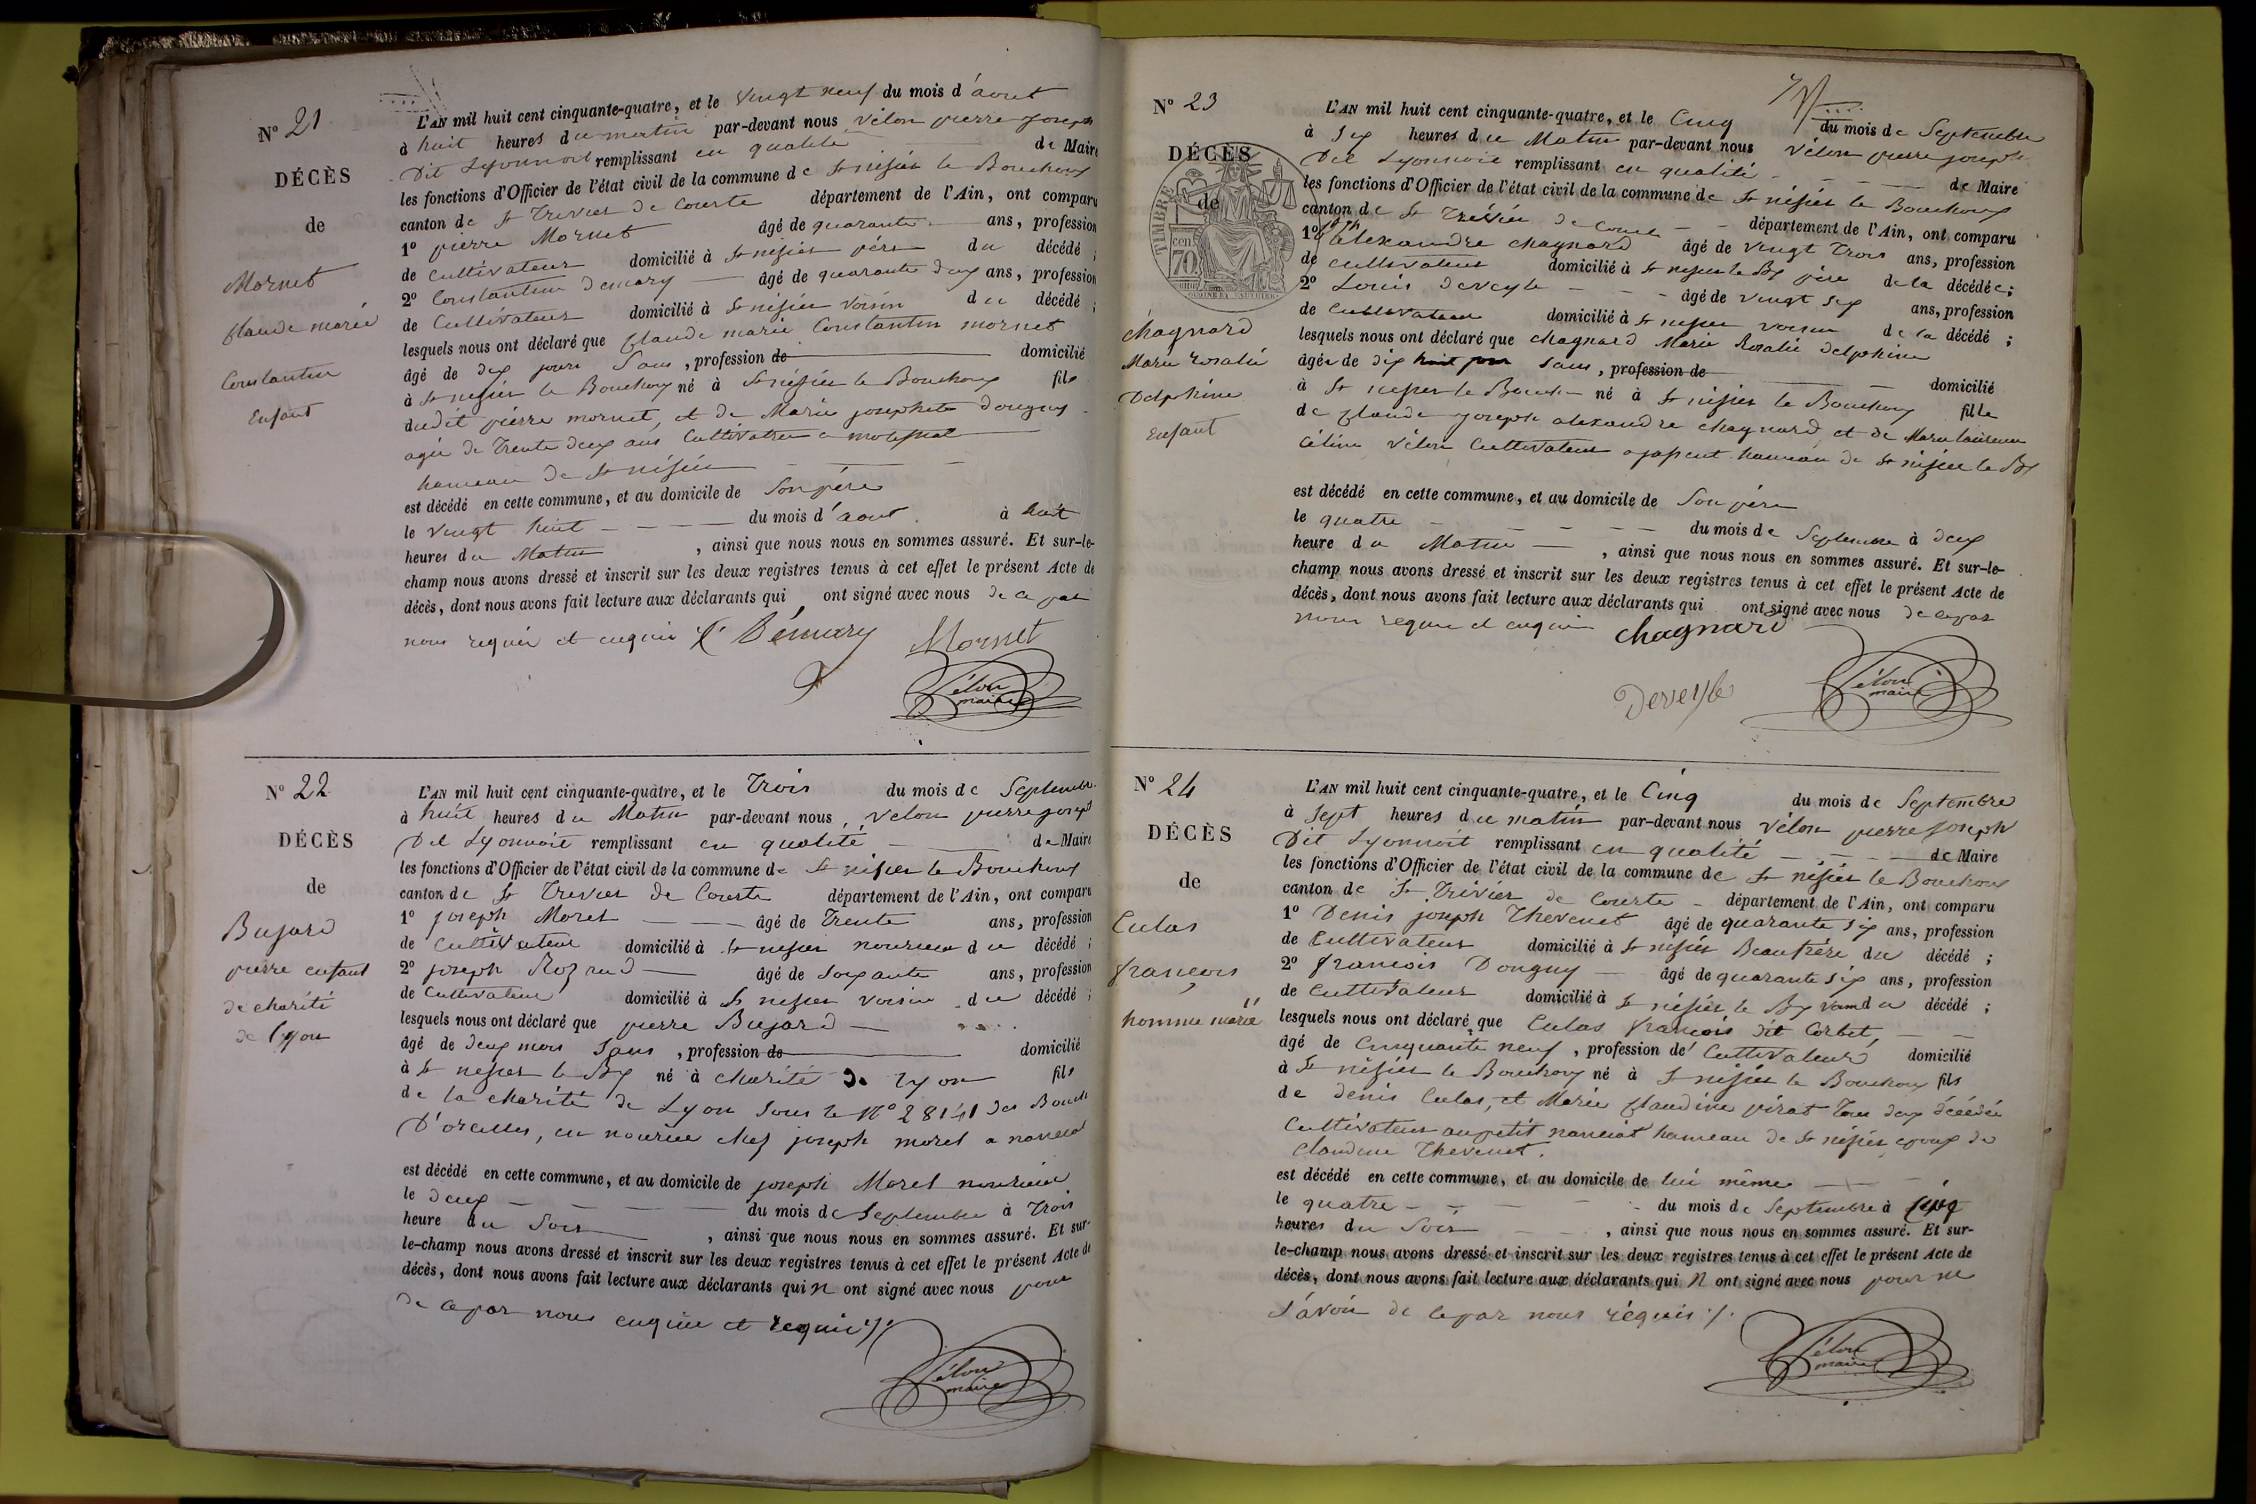 N° 21
DÉCÈS
de
Mornet
Claude marie
Constantin
Enfant
L'AN mil huit cent cinquante-quatre, et le vingt neuf du mois d'aout
à huit heures du matin par-devant nous vélon pierre joseph
Dit Lyonnoit remplissant en qualité de Maire
les fonctions d'Officier de l'état civil de la commune de St nisier le Bouchoux
canton de St Trivier de Courte département de l'Ain, ont comparu
1° pierre Mornet âgé de quarante ans, profession
de cultivateur domicilié à St nisier père du décédé ;
2° Constantin Demary âgé de quarante deux ans, profession
de Cultivateur domicilié à St nisier voisin du décédé ;
lesquels nous ont déclaré que Claude marie Constantin mornet
âgé de dix jours Sans, profession de domicilié
à St nisier le Bouchoux né à St nisier le Bouchoux fils
dudit pierre mornet, et de Marie josephete dougny
agée de Trente deux ans Cultivatrice a
hameau de St nisier
est décédé en cette commune, et au domicile de Son père
le vingt huit du mois d'aout à huit
heures du Matin, ainsi que nous nous en sommes assuré. Et sur-le-
champ nous avons dressé et inscrit sur les deux registres tenus à cet effet le présent Acte de
décès, dont nous avons fait lecture aux déclarants qui ont signé avec nous de ce par
nous requis et enquis C Démary Mornet
Vélon
maire
N° 22
DÉCÈS
de
Bujard
pierre enfant
de charité
de Lyon
L'AN mil huit cent cinquante-quatre, et le Trois du mois de Septembre
à huit heures du Matin par-devant nous, vélon pierre joseph
Dit Lyonnoit remplissant en qualité de Maire
les fonctions d'Officier de l'état civil de la commune de St nisier le Bouchoux
canton de St Trivier de Courte département de l'Ain, ont comparu
1° joseph Morel âgé de Trente ans, profession
de Cultivateur domicilié à St nisier nouricier du décédé ;
2° joseph Rozand âgé de Soixante ans, profession
de Cultivateur domicilié à St nisier voisin du décédé ;
lesquels nous ont déclaré que pierre Bujard
âgé de deux mois Sans, profession de domicilié
à St nisier le Bx né à charité de Lyon fils
de la charité de Lyon Sous le N° 28141 des Boucle
D'oreilles, en nourice chez joseph morel a nanciat
est décédé en cette commune, et au domicile de joseph Morel nouricier
le deux du mois de Septembre à Trois
heure du Soir, ainsi que nous nous en sommes assuré. Et sur-
le-champ nous avons dressé et inscrit sur les deux registres tenus à cet effet le présent Acte de
décès, dont nous avons fait lecture aux déclarants qui n ont signé avec nous pour
de ce par nous enquis et requis ./.
Vélon
maire
N° 23
DÉCÈS
de
TIMBRE
70 cen
chagnard
Marie rosalie
Delphine
Enfant
L'AN mil huit cent cinquante-quatre, et le Cinq du mois de Septembre
à Six heures du Matin par-devant nous vélon pierre joseph
Dit Lyonnoit remplissant en qualité de Maire
les fonctions d'Officier de l'état civil de la commune de St nisier le Bouchoux
canton de St Trévier de Courte département de l'Ain, ont comparu
1° jph alexandre chagnard âgé de vingt Trois ans, profession
de cultivateur domicilié à St nisier le Bx père de la décédée ;
2° Louis deveyle âgé de vingt Six ans, profession
de Cultivateur domicilié à St nisier voisin de la décédé ;
lesquels nous ont déclaré que chagnard Marie Rosalie delphine
âgée de dix huit jour Sans, profession de domicilié
à St nisier le Bouch né à St nisier le Bouchoux fille
de Claude joseph alexandre chagnard et de Marie
Céline vélon Cultivateur hameau de St nisier le Bx
est décédé en cette commune, et au domicile de Son père
le quatre du mois de Septembre à deux
heure du Matin, ainsi que nous nous en sommes assuré. Et sur-le-
champ nous avons dressé et inscrit sur les deux registres tenus à cet effet le présent Acte de
décès, dont nous avons fait lecture aux déclarants qui ont signé avec nous de ce par
nous requis et enquis chagnard
Deveyle
Vélon
maire
N° 24
DÉCÈS
de
Culas
françois
homme marié
L'AN mil huit cent cinquante-quatre, et le Cinq du mois de Septembre
à Sept heures du matin par-devant nous vélon pierre joseph
Dit Lyonnoit remplissant en qualité de Maire
les fonctions d'Officier de l'état civil de la commune de St nisier le Bouchoux
canton de St Trivier de Courte département de l'Ain, ont comparu
1° Denis joseph Thevenet âgé de quarante six ans, profession
de Cultivateur domicilié à St nisier Beaufrére du décédé ;
2° françois Dougny âgé de quarante Six ans, profession
de Cultivateur domicilié à St nisier le Bx voisin du décédé ;
lesquels nous ont déclaré que Culas françois dit Corbet,
âgé de Cinquante neuf, profession de Cultivateur domicilié
à St nisier le Bouchoux né à St nisier le Bouchoux fils
de denis Culas, et Marie Claudine pirat Tous deux décédés
Cultivateur au petit nanciat hameau de St nisier epoux de
Claudine Thevenet.
est décédé en cette commune, et au domicile de lui même
le quatre du mois de Septembre à Cinq
heures du Soir, ainsi que nous nous en sommes assuré. Et sur-
le-champ nous avons dressé et inscrit sur les deux registres tenus à cet effet le présent Acte de
décès, dont nous avons fait lecture aux déclarants qui N ont signé avec nous pour ne
Savoir de ce par nous requis ./.
Vélon
maire